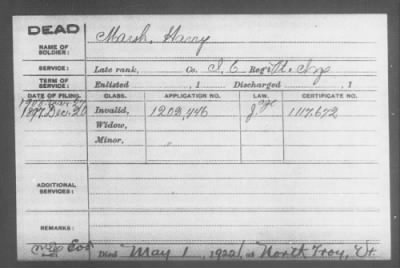 DEAD
NAME OF SOLDIER: Marsh, Harry
SERVICE: Late rank, Co. I, 6 Reg't
TERM OF SERVICE: Enlisted , 1 Discharged , 1
DATE OF FILING. CLASS. APPLICATION NO. LAW. CERTIFICATE NO.
1897. Dec. 20 Invalid, 1,202,446 1117,672
Widow,
Minor, "
ADDITIONAL SERVICES:
REMARKS:
Died May 1, 1922, at North Troy, Vt.